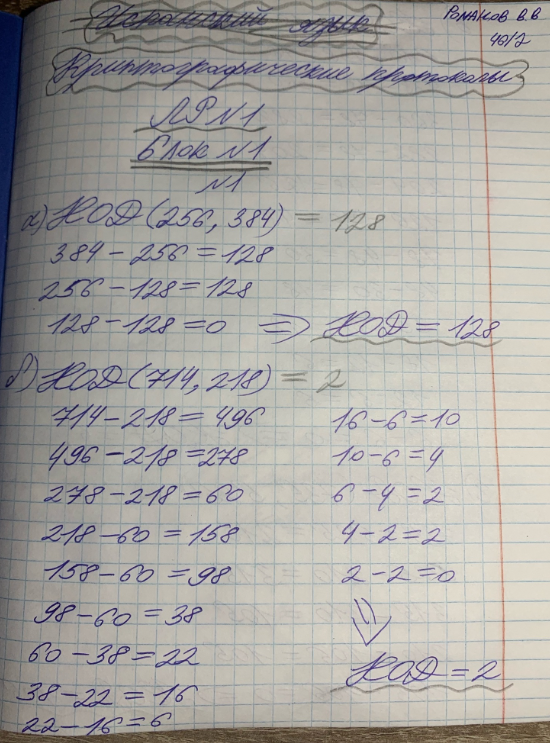 Романов В В
401/2
Криптографические протоколы
ЛР №1
Блок №1
№1
а) НОД (256, 384) = 128
384 - 256 = 128
256 - 128 = 128
128 - 128 = 0 => НОД = 128
б) НОД (714, 218) = 2
714 - 218 = 496
496 - 218 = 278
278 - 218 = 60
218 - 60 = 158
158 - 60 = 98
98 - 60 = 38
60 - 38 = 22
38 - 22 = 16
22 - 16 = 6
16 - 6 = 10
10 - 6 = 4
6 - 4 = 2
4 - 2 = 2
2 - 2 = 0
НОД = 2